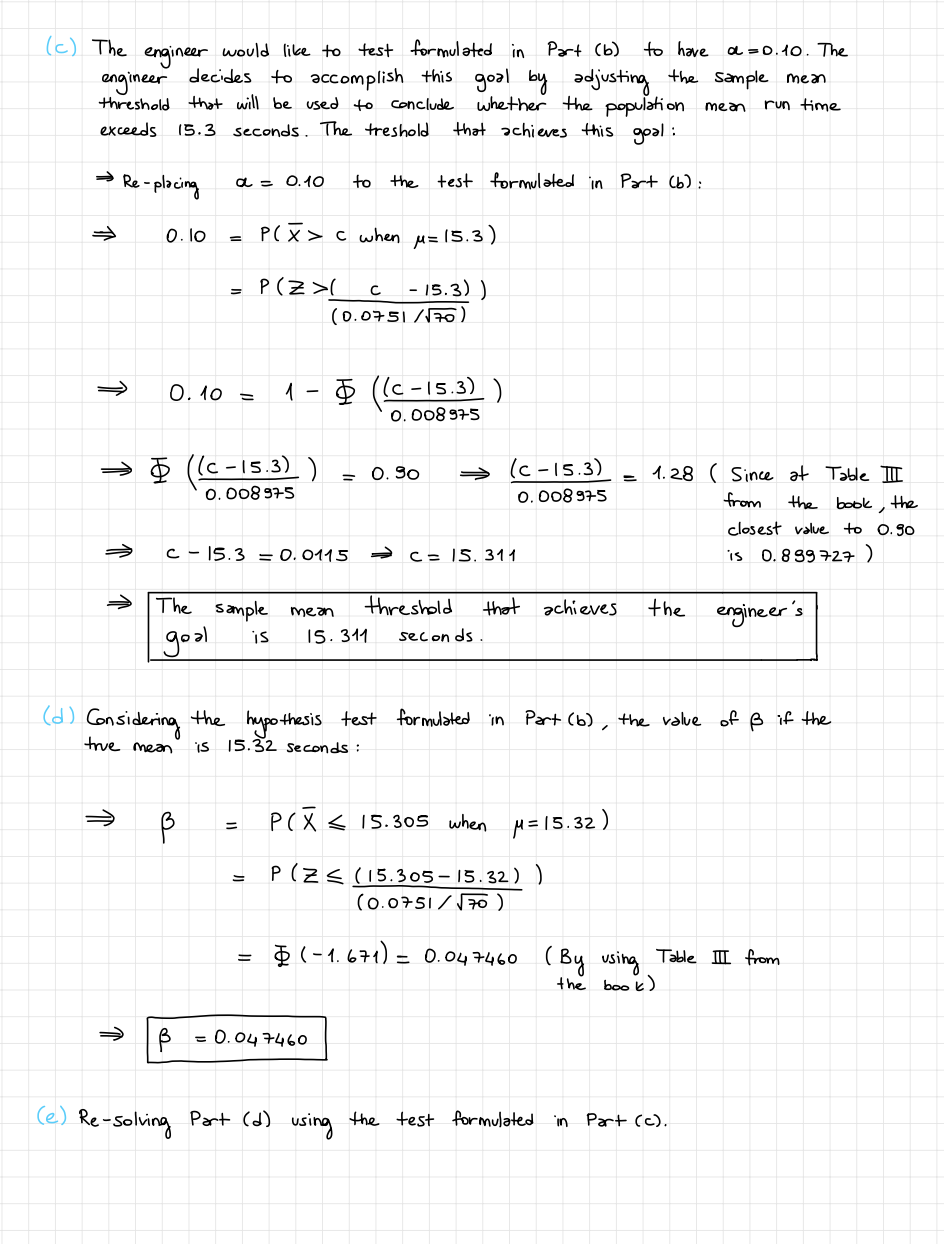 (c) The engineer would like to test formulated in Part (b) to have α = 0.10. The
engineer decides to accomplish this goal by adjusting the sample mean
threshold that will be used to conclude whether the population mean run time
exceeds 15.3 seconds. The treshold that achieves this goal :
⇒ Re-placing α = 0.10 to the test formulated in Part (b) :
⇒ 0.10 = P( X̄ > c when μ = 15.3 )
= P ( Z > ( c - 15.3) / (0.0751 / √70 ) )
⇒ 0.10 = 1 - Φ ( (c - 15.3) / 0.008975 )
⇒ Φ ( (c - 15.3) / 0.008975 ) = 0.90 ⇒ (c - 15.3) / 0.008975 = 1.28 ( Since at Table III
from the book, the
closest value to 0.90
is 0.899727 )
⇒ c - 15.3 = 0.0115 ⇒ c = 15.311
⇒ The sample mean threshold that achieves the engineer's
goal is 15.311 seconds.
(d) Considering the hypothesis test formulated in Part (b), the value of β if the
true mean is 15.32 seconds :
⇒ β = P( X̄ ≤ 15.305 when μ = 15.32 )
= P ( Z ≤ (15.305 - 15.32) / (0.0751 / √70 ) )
= Φ (-1.671) = 0.047460 ( By using Table III from
the book)
⇒ β = 0.047460
(e) Re-solving Part (d) using the test formulated in Part (c).